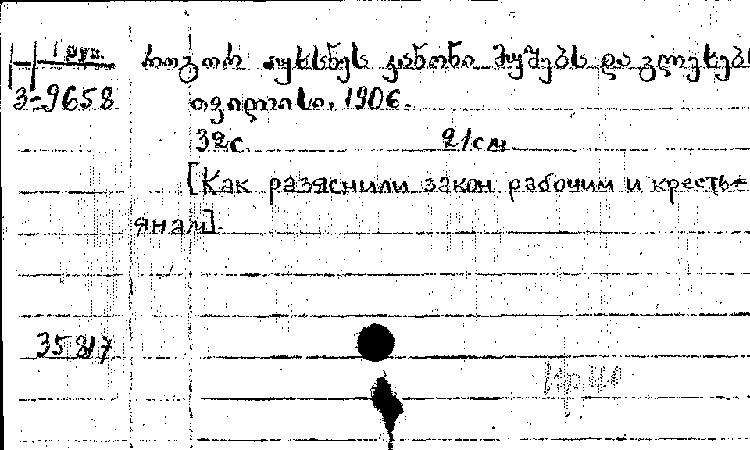 1 груз.
3-9658
როგორ აუხსნეს კანონი მუშებს და გლეხებს
თფილისი, 1906.
32с. 21см.
[Как разяснили закон рабочим и кресть-
янам].
35817